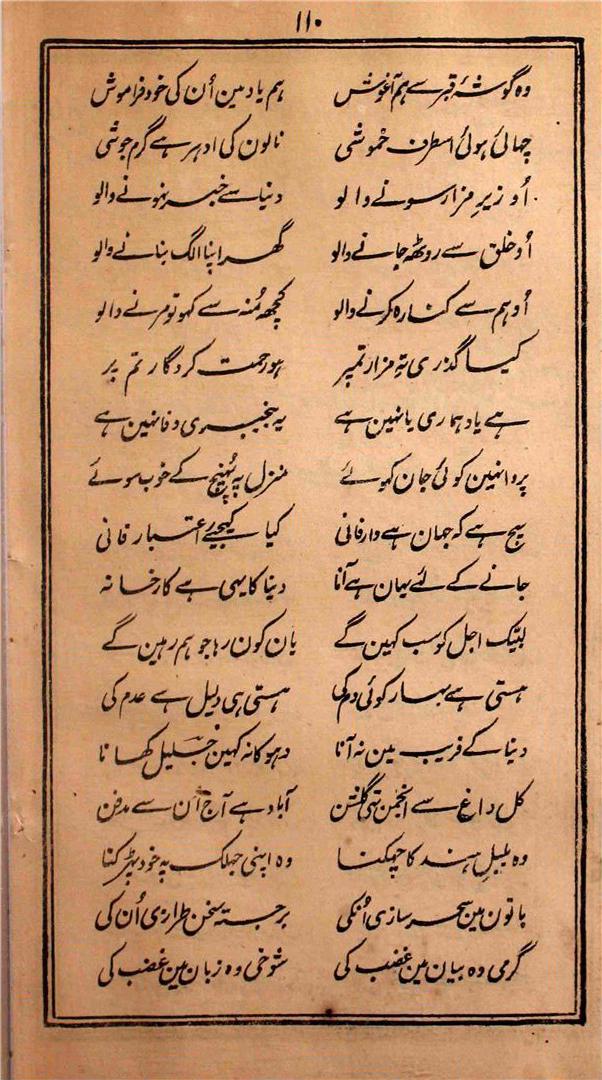 ۱۱۰
وہ گوشۂ قبر سے ہم آغوش ہم یاد مین اُن کی خود فراموش
چھائی ہوئی اسطرف خموشی نالون کی ادہر ہے گرم جوشی
اُو زیرِ مزار سونے والو دنیا سے خبر نہونے والو
اُو خلق سے روٹھ جانے والو گھر اپنا الگ بنانے والو
اُو ہم سے کنارہ کرنے والو کچھ مُنہ سے کہو تو مرنے والو
کیسا گذری تہِ مزار تمپر ہو رحمت کردگار تم پر
ہے یاد ہماری یا نہین ہے یہ بیخبری وفا نہین ہے
پروا نہین کوئی جان کہوئے منزل پہ پُہنچ کے خوب سوئے
سچ ہے کہ جہان ہے دار فانی کیا کیجیے اعتبار فانی
جانے کے لئے یہان ہے آنا دنیا کا یہی ہے کارخانہ
لبیک اجل کو سب کہین گے یان کون رہا جو ہم رہین گے
ہستی ہے بہار کوئی دم کی ہستی ہی دلیل ہے عدم کی
دنیا کے فریب مین نہ آنا دہوکا نہ کہین جلیل کھانا
کل داغ سے انجمن تھی گلشن آباد ہے آج اُن سے مدفن
وہ بلبلِ ہند کا چہکنا وہ اپنی جھلک پہ خود پہڑکنا
باتون مین سحر سازی اُنکی برجستہ سخن طرازی اُن کی
گرمی وہ بیان مین غضب کی شوخی وہ زبان مین غضب کی